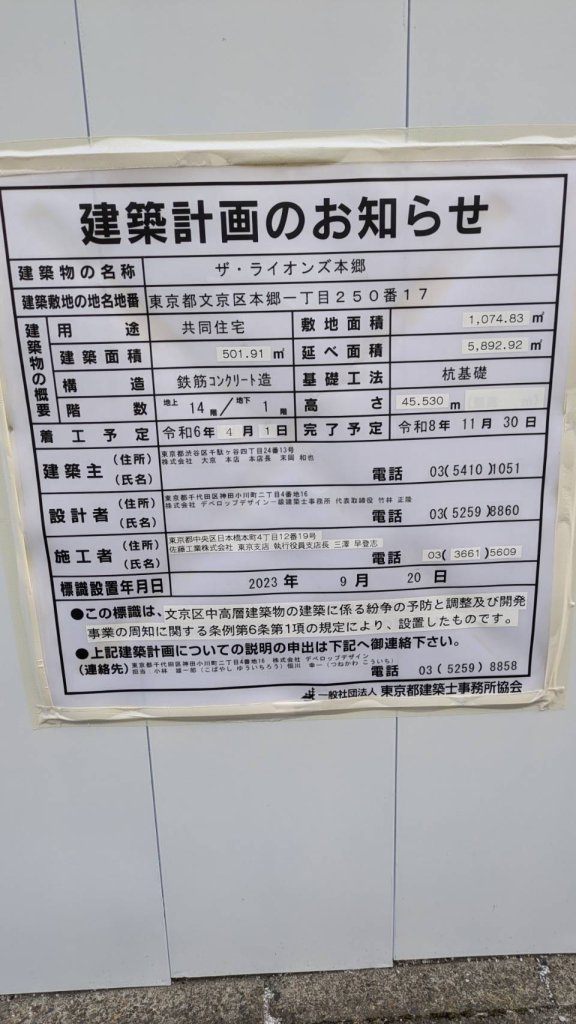 建築計画のお知らせ
建築物の名称 ザ・ライオンズ本郷
建築敷地の地名地番 東京都文京区本郷一丁目250番17
建築物の概要
用途 共同住宅 敷地面積 1,074.83 ㎡
建築面積 501.91 ㎡ 延べ面積 5,892.92 ㎡
構造 鉄筋コンクリート造 基礎工法 杭基礎
階数 地上 14 階 / 地下 1 階 高さ 45.530 m
着工予定 令和6年 4月 1日 完了予定 令和8年 11月 30日
建築主 (住所) 東京都渋谷区千駄ヶ谷四丁目24番13号
(氏名) 株式会社 大京 本店 本店長 末岡 和也 電話 03(5410)1051
設計者 (住所) 東京都千代田区神田小川町二丁目4番地16
(氏名) 株式会社 デベロップデザイン一級建築士事務所 代表取締役 竹林 正隆 電話 03(5259)8860
施工者 (住所) 東京都中央区日本橋本町4丁目12番19号
(氏名) 佐藤工業株式会社 東京支店 執行役員支店長 三澤 早登志 電話 03(3661)5609
標識設置年月日 2023年 9月 20日
●この標識は、文京区中高層建築物の建築に係る紛争の予防と調整及び開発
事業の周知に関する条例第6条第1項の規定により、設置したものです。
●上記建築計画についての説明の申出は下記へ御連絡下さい。
(連絡先) 東京都千代田区神田小川町二丁目4番地16 株式会社 デベロップデザイン
担当:小林 雄一郎(こばやし ゆういちろう) 恒川 幸一(つねかわ こういち) 電話 03(5259)8858
一般社団法人 東京都建築士事務所協会